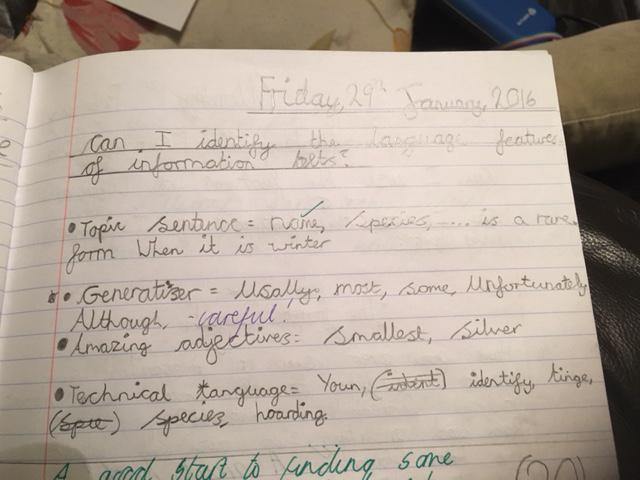 Friday, 29th January, 2016
Can I identify the language features
of information texts?
• Topic sentence = name, species, .... is a rare
form When it is winter
• Generatiser = Usally, most, some, Unfortunately
Although, - careful!
• Amazing adjectives = smallest, silver
• Technical language = Youn, (ident) identify, tinge,
(spee) species, hoarding.
A good start to finding some
(20)